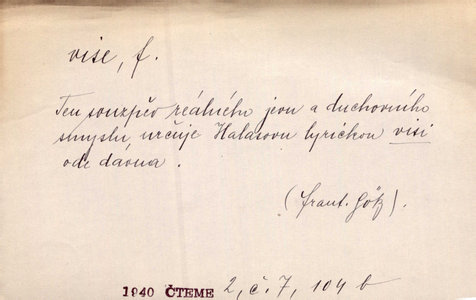 vise, f.
Ten souzpěv reálného jevu a duchovního
smyslu určuje Halasovu lyrickou visi
ode dávna.
(Frant. Götz).
1940 ČTEME 2, č. 7, 104 b